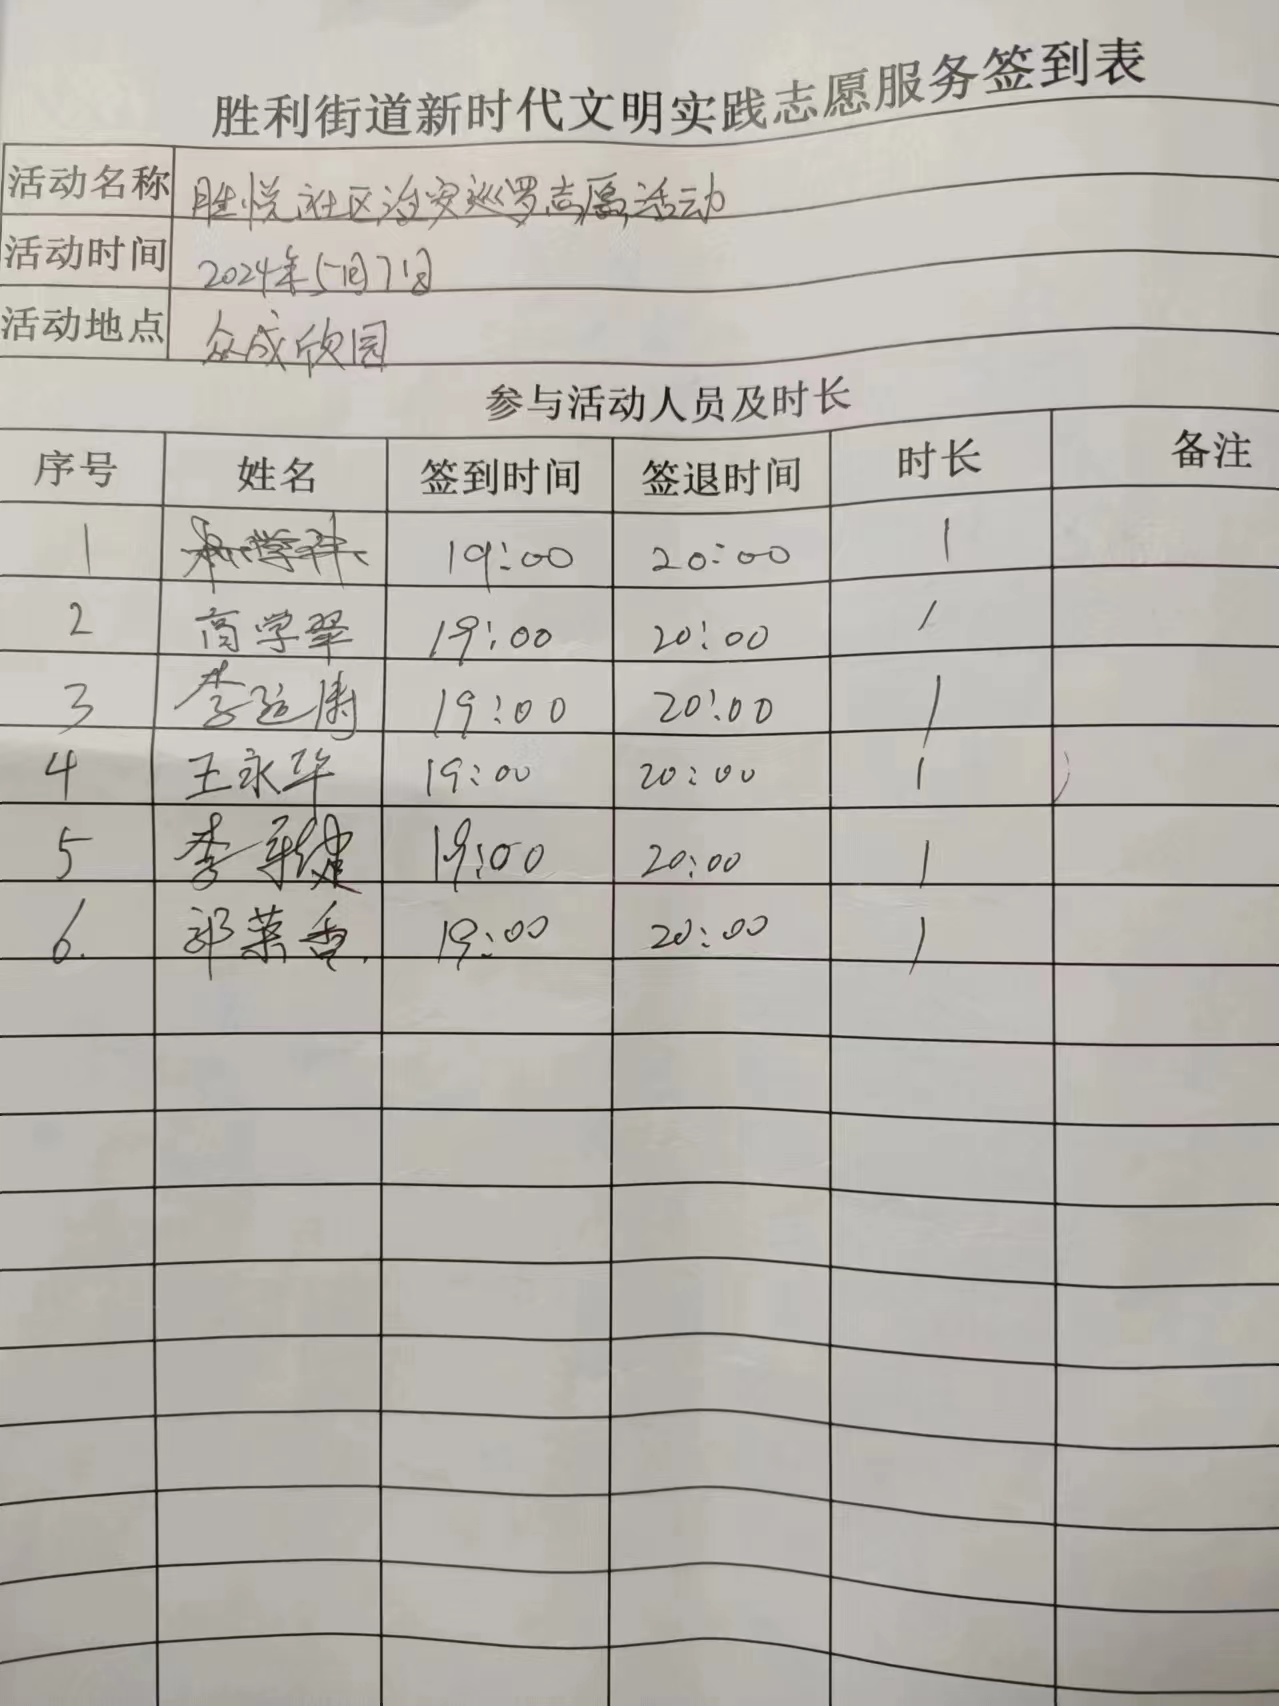 胜利街道新时代文明实践志愿服务签到表
活动名称 胜悦社区治安巡罗志愿活动
活动时间 2024年5月7日
活动地点 众成欣园
参与活动人员及时长
序号 姓名 签到时间 签退时间 时长 备注
1 19:00 20:00 1
2 高学翠 19:00 20:00 1
3 李运涛 19:00 20:00 1
4 王永华 19:00 20:00 1
5 李 19:00 20:00 1
6. 邓菜香. 19:00 20:00 1